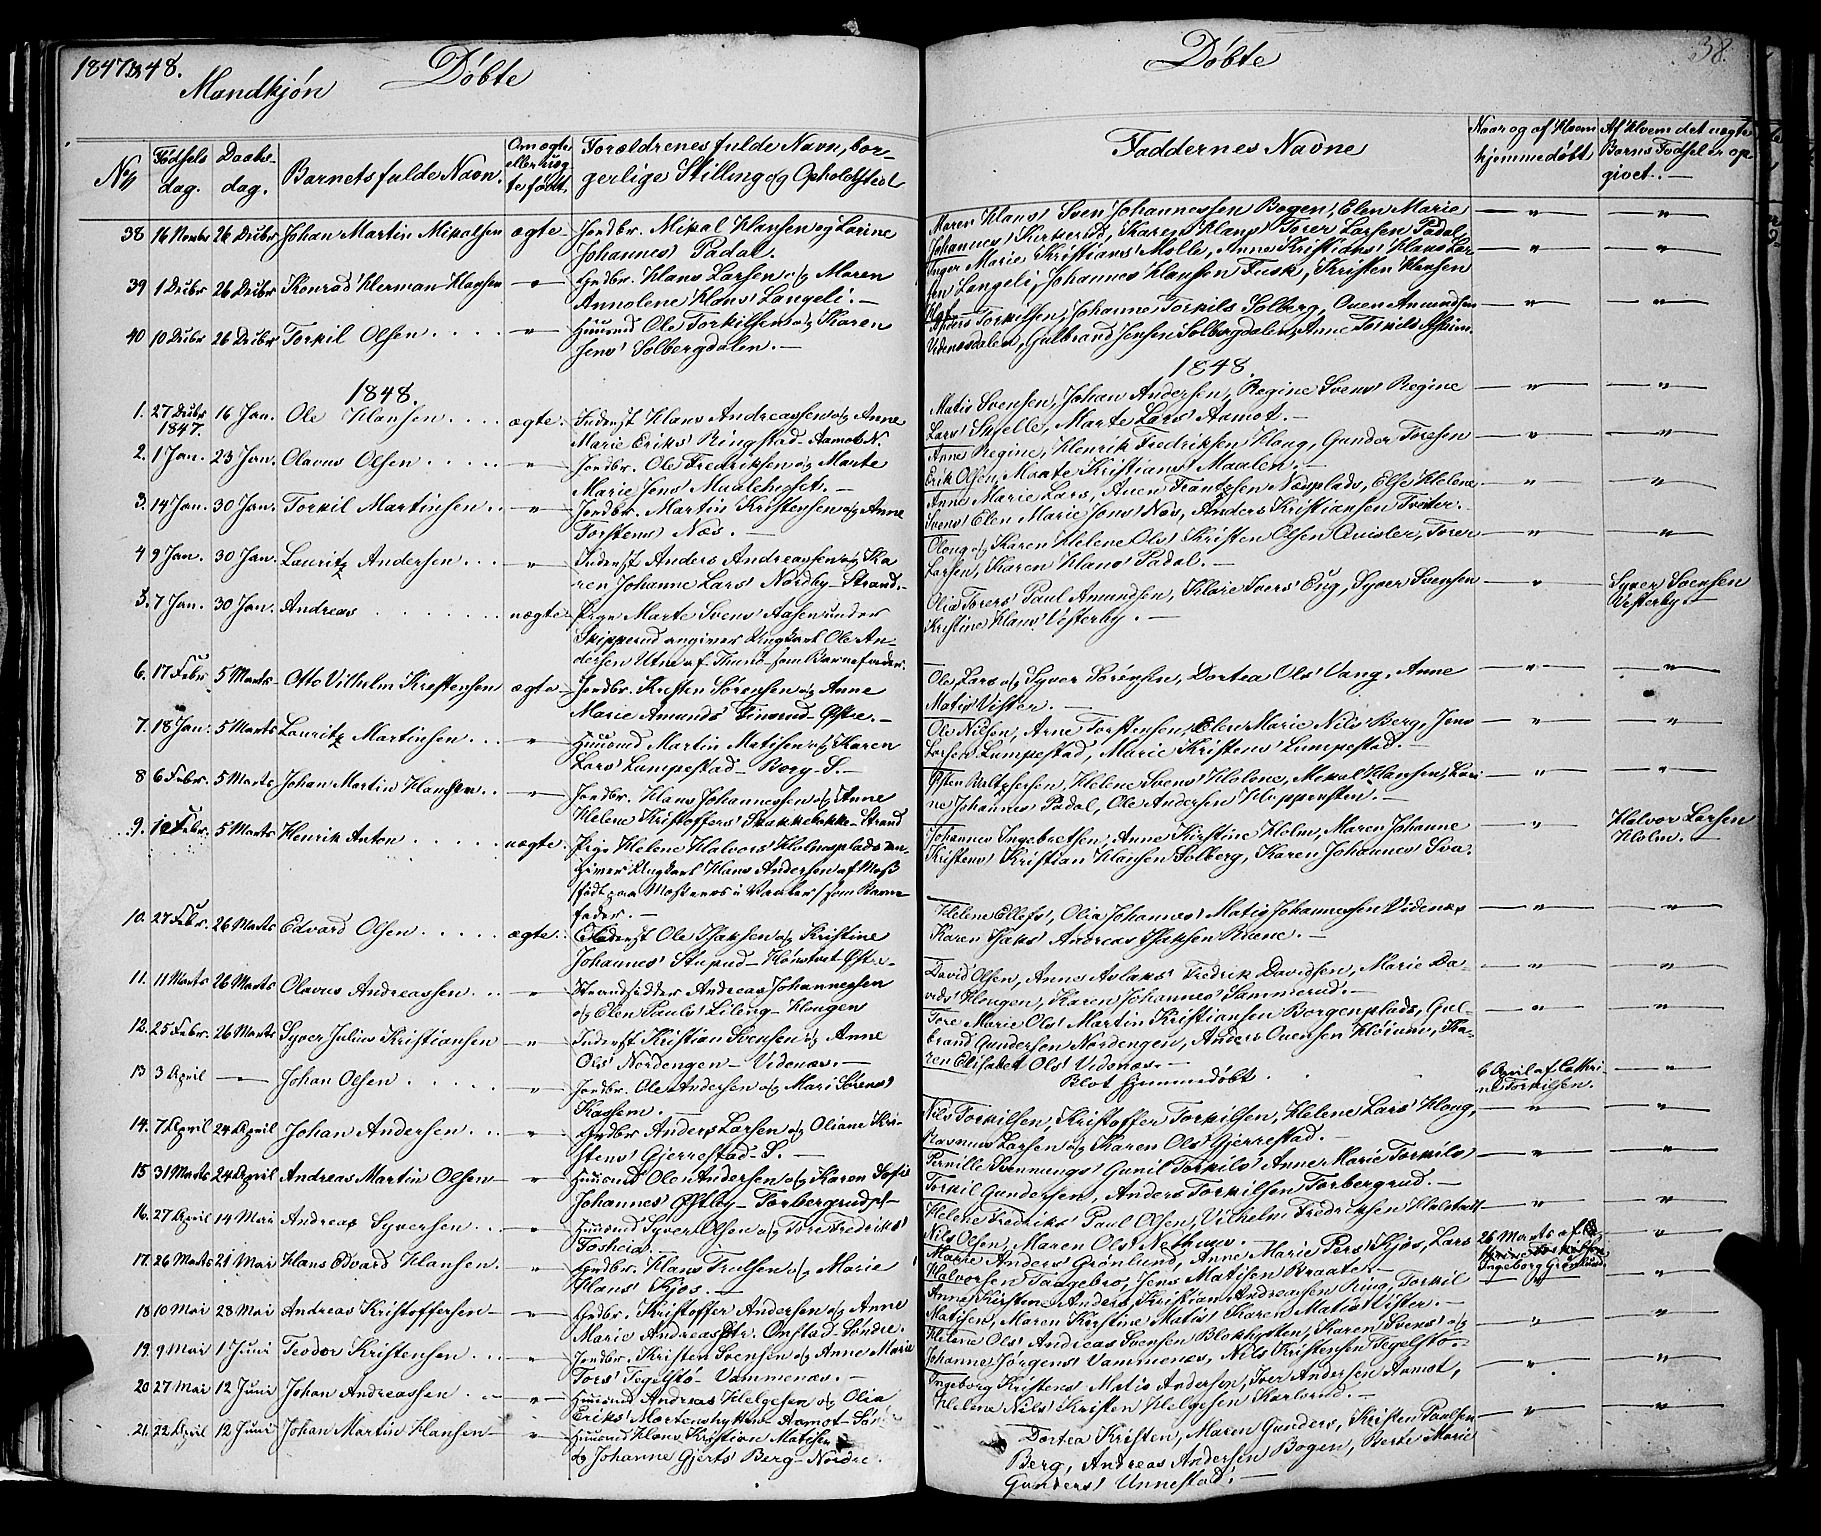 1847 & 48.
Mandkjøn
Døbte
No
Fødsels
dag.
Daabs-
dag.
Barnets fulde Navn.
Om ægte
eller uæg-
te født.
Forældrenes fulde Navn, bor-
gerlige Stilling og Opholdsted
38 16 Novbr 26 Decbr Johan Martin Mikalsen ægte Jordbr. Mikal Hansen og Larine
Johannes' Padal.
39 1 Decbr 26 Decbr Konrad Herman Hansen — " — Gaardbr. Hans Larsen og Maren
Annolene Hans' Langeli. —
40 10 Decbr 26 Decbr Torkil Olsen . . . . — " — Huusmd Ole Torkilsen og Karen
Jens' Solbergdalen. —
1848.
1. 27 Decbr 1847. 16 Jan. Ole Hansen . . . . ægte. Inderst Hans Andreassen og Anne
Marie Eriks' Ringstad - Aamot N.
2. 1 Jan. 23 Jan. Olavus Olsen . . . . . — " — Jordbr. Ole Fredriksen og Marte
Marie Jens' Maalehuset. —
3. 14 Jan. 30 Jan. Torkil Martinsen . . — " — Jordbr. Martin Kristensen og Anne
Torstens' Næs. —
4 9 Jan. 30 Jan. Lauritz Andersen . . . — " — Inderst Anders Andreassen og Ka
ren Johanne Lars' Nordby - Strand -
5. 7 Jan. 30 Jan. Andreas . . . . . . . uægte Pige Marte Svens' Aasen under
Skipperud angiver Ungkarl Ole An-
dersen Utne af Thunø som Barnefader.
6. 17 Febr 5 Marts Otto Vilhelm Kristensen ægte Jordbr. Kristen Sørensen og Anne
Marie Amunds' Finsrud - Østre. —
7. 18 Jan. 5 Marts Lauritz Martinsen . . . — " — Huusmd Martin Matisen og Karen
Lars' Lumpestad - Borg - S. —
8 6 Febr. 5 Marts Johan Martin Hansen . . — " — Jordbr. Hans Johannessen og Anne
Helene Kristoffers' Stakkebakke - Strand
9. 10 Febr. 5 Marts Henrik Anton . . . . . uægte. Pige Helene Halvors' Holmsplads an-
giver Ungkarl Hans Andersen af Moss
/født paa Mosteros i Vaaler/ som Barne-
fader. —
10. 27 Febr. 26 Marts Edvard Olsen . . . . . ægte. Inderst Ole Isaksen og Kristine
Johannes' Stupud - Hønstvet Østre -
11. 11 Marts 26 Marts Olavus Andreassen . . . — " — Strandsidder Andreas Johannessen
og Elen Pauls' Lileng - Hougen
12. 25 Febr. 26 Marts Syver Julius Kristiansen — " — Inderst Kristian Svensen og Anne
Ols' Nordengen - Videnæs. —
13 3 April — Johan Olsen . . . . . " Jordbr. Ole Andersen og Mari Sørens'
Kassem. —
14. 7 April 24 April Johan Andersen . . . — " — Gaardbr Anders Larsen og Oliane Kri-
stens' Gjerrestad - S. —
15 31 Marts 24 April Andreas Martin Olsen — " — Huusmd Ole Andersen og Karen Sofie
Johannes' Østby - Torbergrudst -
16. 27 April 14 Mai Andreas Syversen . . — " — Huusmd Syver Olsen og Tore Fredriks'
Fosheia. —
17. 26 Marts 21 Mai Hans Edvard Hansen. — " — Gaardbr. Hans Trulsen og Marie
Hans' Kjøs. —
18 10 Mai 28 Mai Andreas Kristoffersen — " — Gaardbr. Kristoffer Andersen og Anne
Marie Andreasdtr. Onstad - Søndre.
19. 9 Mai 1 Juni Teodor Kristensen . . . — " — Jordbr. Kristen Svensen og Anne Marie
Tors' Tegelstø - Vammenæs. —
20 27 Mai 12 Juni Johan Andreassen . . — " — Huusmd Andreas Helgesen og Olia
Eriks' Mortenshytten - Aamot -
21. 22 April 12 Juni Johan Martin Hansen — " — Huusmd Hans Kristian Matisen
og Johanne Gjerts' Berg - Nordre.
Døbte
38.
Faddernes Navne
Naar og af Hvem
hjemmedøbt
Af Hvem det uægte
Barns Fødsel er op-
givet. —
Maren Hans' Sven Johannessen Bogen, Elen Marie
Johannes' Kirkerud, Karen Hans' Torer Larsen Padal.
Inger Marie Kristians' Molle, Anne Kristians' Hans Lar-
sen Langeli, Johannes Hansen Fusk, Kristen Hansen
Anders Torkilsen, Johanne Torkils' Solberg, Ouen Amundsen
Videnæsdalen, Gulbrand Jensen Solbergdalen, Anne Torkils' Askim.
1848.
Matis Svensen, Johan Andersen, Regine Svens' Regine
Lars' Skjelle, Marte Lars' Aamot. —
Anne Regine, Henrik Fredriksen Houg, Gunder Toresen
Erik Olsen, Maate Kristians' Maalen. —
Anne Marie Lars, Auen Frantzsen Næsplads, Else Helene
Svens' Elen Marie Jons' Næs, Anders Kristiansen Tveter.
Oloug og Karen Helene Ols' Kristen Olsen Quisler, Torer
Larsen, Karen Hans' Padal. —
Olia Torers' Paul Amundsen, Klare Ivers' Eng, Syver Svensen
Kristine Hans' Vesterby. —
Syver Svensen
Vesterby. —
Ole Lars og Syver Sørensen, Dortea Ols' Vang, Anne
Matis' Vister. —
Ole Nilsen, Arne Torstensen, Elen Marie Nils' Berg, Jens
Larsen Lumpestad, Marie Kristens' Lumpestad. —
Østen Baltzersen, Helene Svens' Halone, Mikal Hansen, Lari
ne Johannes' Padal, Ole Andersen Kloppensten. —
Johannes Ingebretsen, Anne Kirstine Holm, Maren Johanne
Kristens' Kristian Hansen Solberg, Karen Johannes' Sva.
Halvor Larsen
Holm. —
Helene Ellefs', Olia Johannes' Matis Johannessen Videnæs
Karen Isaks' Andreas Isaksen Bræne. —
David Olsen, Anne Aslaks' Fredrik Davidsen, Marie Da-
vids' Hougen, Karen Johannes' Sammerud. —
Tore Marie Ols' Martin Kristiansen Borgenplads, Gul-
brand Gundersen Nordengen, Anders Ouensen Höiaune, Ka-
ren Elisabet Ols' Videnæs. —
Blot Hjemmedøbt . .
6 April af Cathri-
ne Torkilsen.
Nils Torkilsen, Kristoffer Torkilsen, Helene Lars' Houg,
Rasmus Larsen og Karen Ols' Gjerrestad. —
Pernille Svennungs' Gunil Torkils' Anne Marie Torkils'
Torkil Gundersen, Anders Torkilsen Torbergrud. —
Helene Fredriks' Paul Olsen, Vilhelm Fredriksen Halstedt
Nils Olsen, Maren Ols' Nethuus. —
Marie Anders' Grønlund, Anne Marie Pers' Kjøs, Lars
Halvorsen Taagebro, Jens Matisen Braate. —
26 Marts af
Ingeborg Grønlund.
Anne Kirstine Anders, Kristian Andreassen Ring, Torkil
Matisen, Maren Kirstine Matis' Karen Matis' Vister. —
Helene Ols' Andreas Svensen Blokhytten, Karen Svens' og
Johanne Jørgens' Vammenæs, Nils Kristensen Tegelstø -
Ingeborg Kristens' Matis Andersen, Iver Andersen Aamot,
Helena Nils' Kristen Helgesen Karlsrud. —
Dortea Kristen, Maren Gunders, Kristen Paulsen
Berg, Andreas Andersen Bogen, Berte Marie
Gunders' Unnestad. —